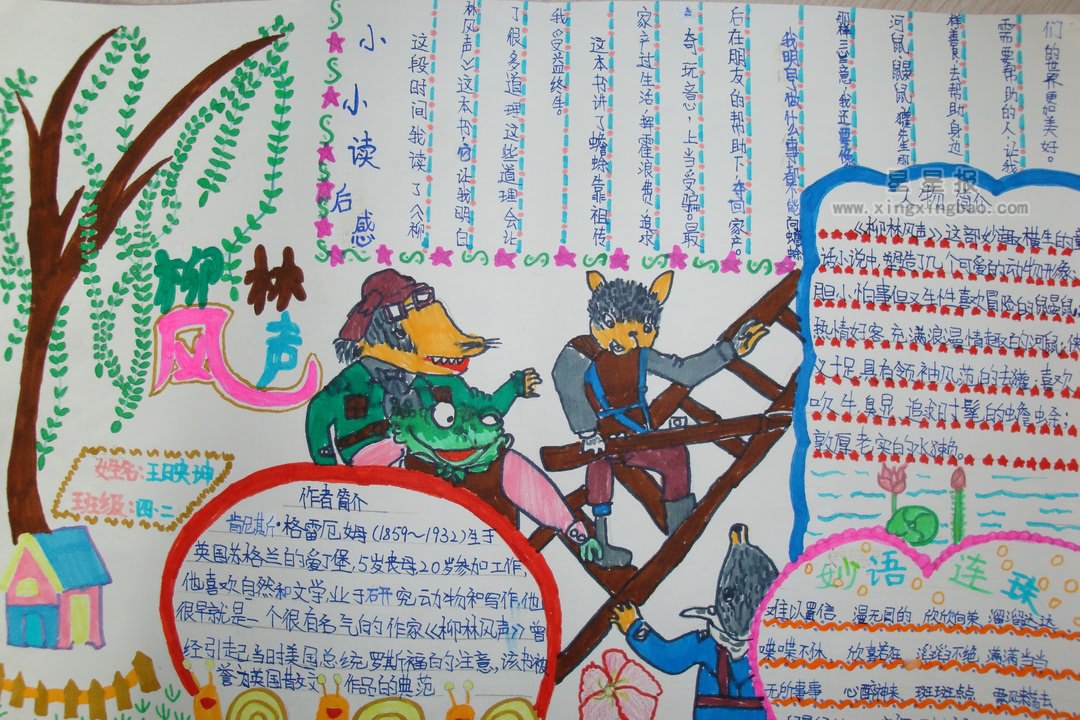 柳林
风声
姓名:王映坤
班级:四.二
小小读后感
这段时间我读了《柳
林风声》这本书,它让我明白
了很多道理,这些道理会让
我受益终生。
这本书讲了蟾蜍靠祖传
家产过生活,挥霍浪费,追求
奇玩意,上当受骗。最
后在朋友的帮助下,夺回家产。
我明白了做什么事
河鼠、鼹鼠、獾先生那
样善良,去帮助身边
需要帮助的人,让我
们的世界更加美好。
人物简介
星星报
www.xingxingbao.com
《柳林风声》这部妙趣横生的童
话小说中,塑造了几个可爱的动物形象:
胆小怕事但又生性喜欢冒险的鼹鼠;
热情好客、充满浪漫情趣的河鼠;侠
义十足,具有领袖风范的老獾;喜欢
吹牛、臭显、追求时髦的蟾蜍;
敦厚老实的水獭。
作者简介
肯尼斯·格雷厄姆(1859~1932)生于
英国苏格兰的爱丁堡,5岁丧母,20岁参加工作,
他喜欢自然和文学,业于研究动物和写作,他
很早就是一个很有名气的作家《柳林风声》曾
经引起当时美国总统罗斯福的注意,该书被
誉为英国散文 作品的典范
妙语连珠
难以置信 漫无目的 欣欣向荣 溜溜达达
喋喋不休 欣喜若狂 滔滔不绝 满满当当
无所事事 心醉神迷 斑斑点点